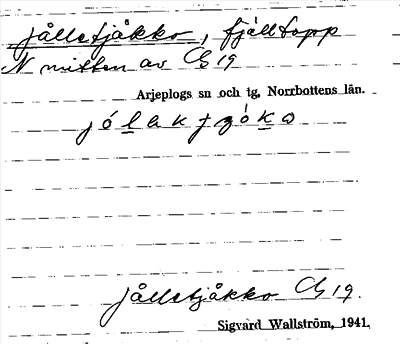 Jålletjåkko, fjälltopp
N mitten av C519
Arjeplogs sn och tg, Norrbottens län.
Jålletjåkko C519.
Sigvard Wallström, 1941.